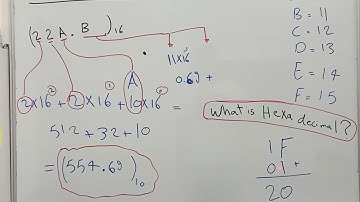 (22A.B)₁₆
11×16
0.69 +
A
2×16² + 2×16¹ + 10×16⁰ =
512 + 32 + 10
= (554.69)₁₀
B = 11
C = 12
D = 13
E = 14
F = 15
What is Hexadecimal?
1F
01 +
20